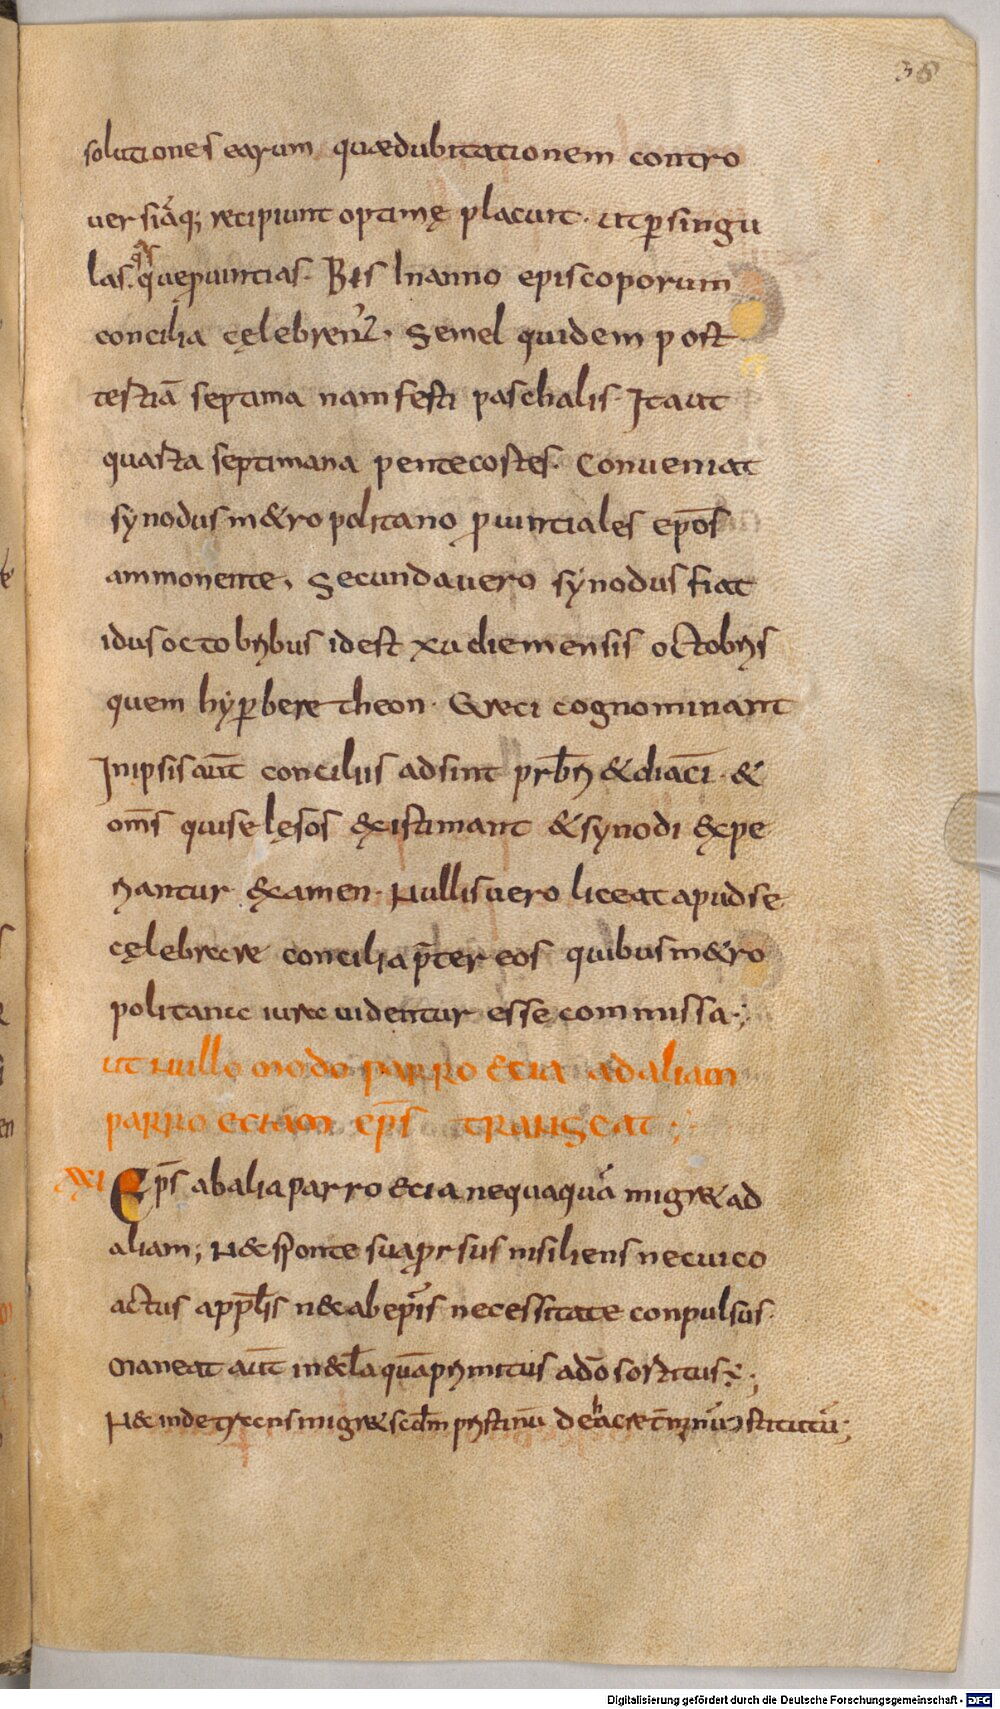 38
solutiones earum quaedubitationem contro
uersiāq; recipiunt optimę placuit. ut ꝑsingu
las. quasquepuintias. Bis Inanno episcoporum
concilia cęlebrent᷑. Semel quidem post
tertiā septima namfesti paschalis. Itaut
quarta septimana pentecostes. Conueniat
synodus m&ropolitano ꝓuintiales epōs
ammonente. Secundauero synodus fiat
idusoctobribus idest xu diemensis octobris
quem hyꝑberetheon. Greci cognominant
Inipsisaūt conciliis adsint prb̄ri &diac̄i. &
om̄s quiselęsos &xistimant &synodi &xpe
riantur &xamen. Nullisuero liceatapudse
cęlebrare concilia p̄ter eos quibusm&ro
politanae iura uidentur essecommissa.;
ut nullo modo parroecia adaliam
parroeciam ep̄s transeat;
XXI Ep̄s abaliaparroecia nequaquā migr& ad
aliam; N&sponte suaꝓrsus insiliens necuico
actus appl̄is n&abep̄is necessitate conpulsus.
Maneat aūt in&c̄la quāprimitus ad̄o sortitusē;
N&indetranensmigr&scd̄m pristinū dehacre t̄minū ↄstitutū;
Digitalisierung gefördert durch die Deutsche Forschungsgemeinschaft - DFG